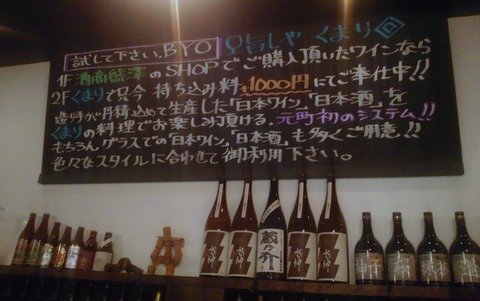 試して下さい、BYO 旨しや くまり
1F 酒商熊澤のSHOPでご購入頂いたワインなら
2Fくまりで只今 持ち込み料 1000円にてご奉仕中!!
造詣が丹精込めて生産した「日本ワイン」「日本酒」を
くまりの料理でお楽しみ頂ける、元町初のシステム!!
もちろん、グラスでの「日本ワイン」「日本酒」も多くご用意!!
色々なスタイルに合わせて御利用下さい。
蔵々介